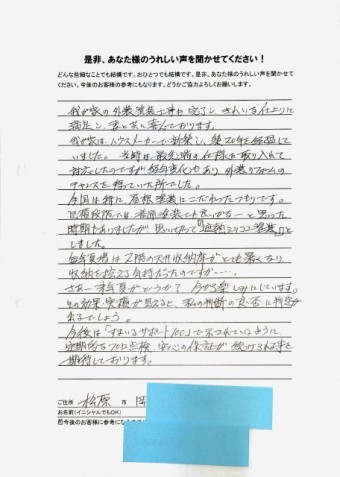 是非、あなた様のうれしい声を聞かせてください！
どんな些細なことでも結構です。おひとつでも結構です。是非、あなた様のうれしい声を聞かせて
ください。今後のお客様の参考にもなります。どうかご協力よろしくお願いします。
我が家の外装塗装工事も完了し、きれいな仕上りに
満足し、妻と共に喜んでおります。
我が家は、ハウスメーカーで新築し、築20年を経過して
いました。当時は最先端の仕様を取り入れて
対応したのですが経年変化もあり外装リフォームの
チャンスを待っていた所でした。
今回は特に屋根塗装にこだわったつもりです。
見積段階では普通塗装でも良いかなーと思った
時期もありましたが思い切って「遮熱シリコン塗装」と
しました。
毎年夏場は2階の天井収納庫がとても暑くなり
収納を控える気持だったのですが・・・・・
さあー来年夏がどうか？今から楽しみにしています。
その効果、実積が見えると、私の判断の良否に判定が
出るでしょう。
今後は「すまいるサポート10」で示されているように
定期的なプロ点検、安心の保証が続けられる事を
期待しております。
ご住所 松原 市
お名前(イニシャルでもOK)
今後のお客様に参考になる